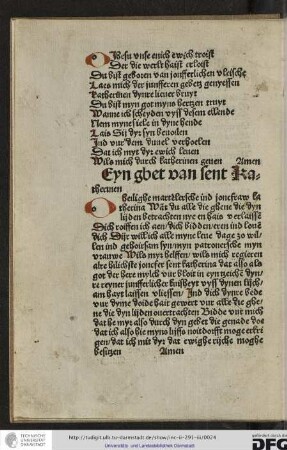 O Jhesu vnse enich ewich troist
Der die werlt haist erloist
Du bist geboren van jonfferlichen vleische
Laes mich der junfferen gebetz genyessen
Katherinen dynre liener bruyt
Du bist myn got myns hertzen truyt
Wanne ich scheyden vyss desem ellende
Nem myne siele in dyne hende
Lais Sij dyr syn beuolen
Ind vur dem duuel verhoelen
Dat ich myt dyr ewich leuen
Wils mich durch katherinen geuen Amen
Eyn gbet van sent Ka-
therinen
O heilighe martelersche ind joncfraw ka
therina Want du alle die ghene die dyn
lijden betrachten nye en hais verlaisse
Dich roiffen ich aen dich bidden eren ind loue
dich Dyr will ich alle myne leue dage zo wil
len ind gehoirsam syn myn patronersche myn
vrauwe Wils myr helffen wils mich regieren
alre hilichste joncfer sent katherina dat also als
got der here mylch vur bloit in eyn zeiche dyn
re reyner junfferlicher kuisheyt vyss dynen lijch
am hayt laissen vliessen Ind dich dynre bede
vur dyme doide hait gewert vur alle die ghe
ne die dyn lijden ouertrachten Bidde vur mich
dat he myr also durch dyn gebet die genade doe
dat ich also hie myns liffs noitdorfft moge erkri
gen dat ich mit dyr dat ewighe rijche moghe
besitzen Amen
http://tudigit.ulb.tu-darmstadt.de/show/inc-iii-291-6/0024
Universitäts- und Landesbibliothek Darmstadt
gefördert durch die
DFG